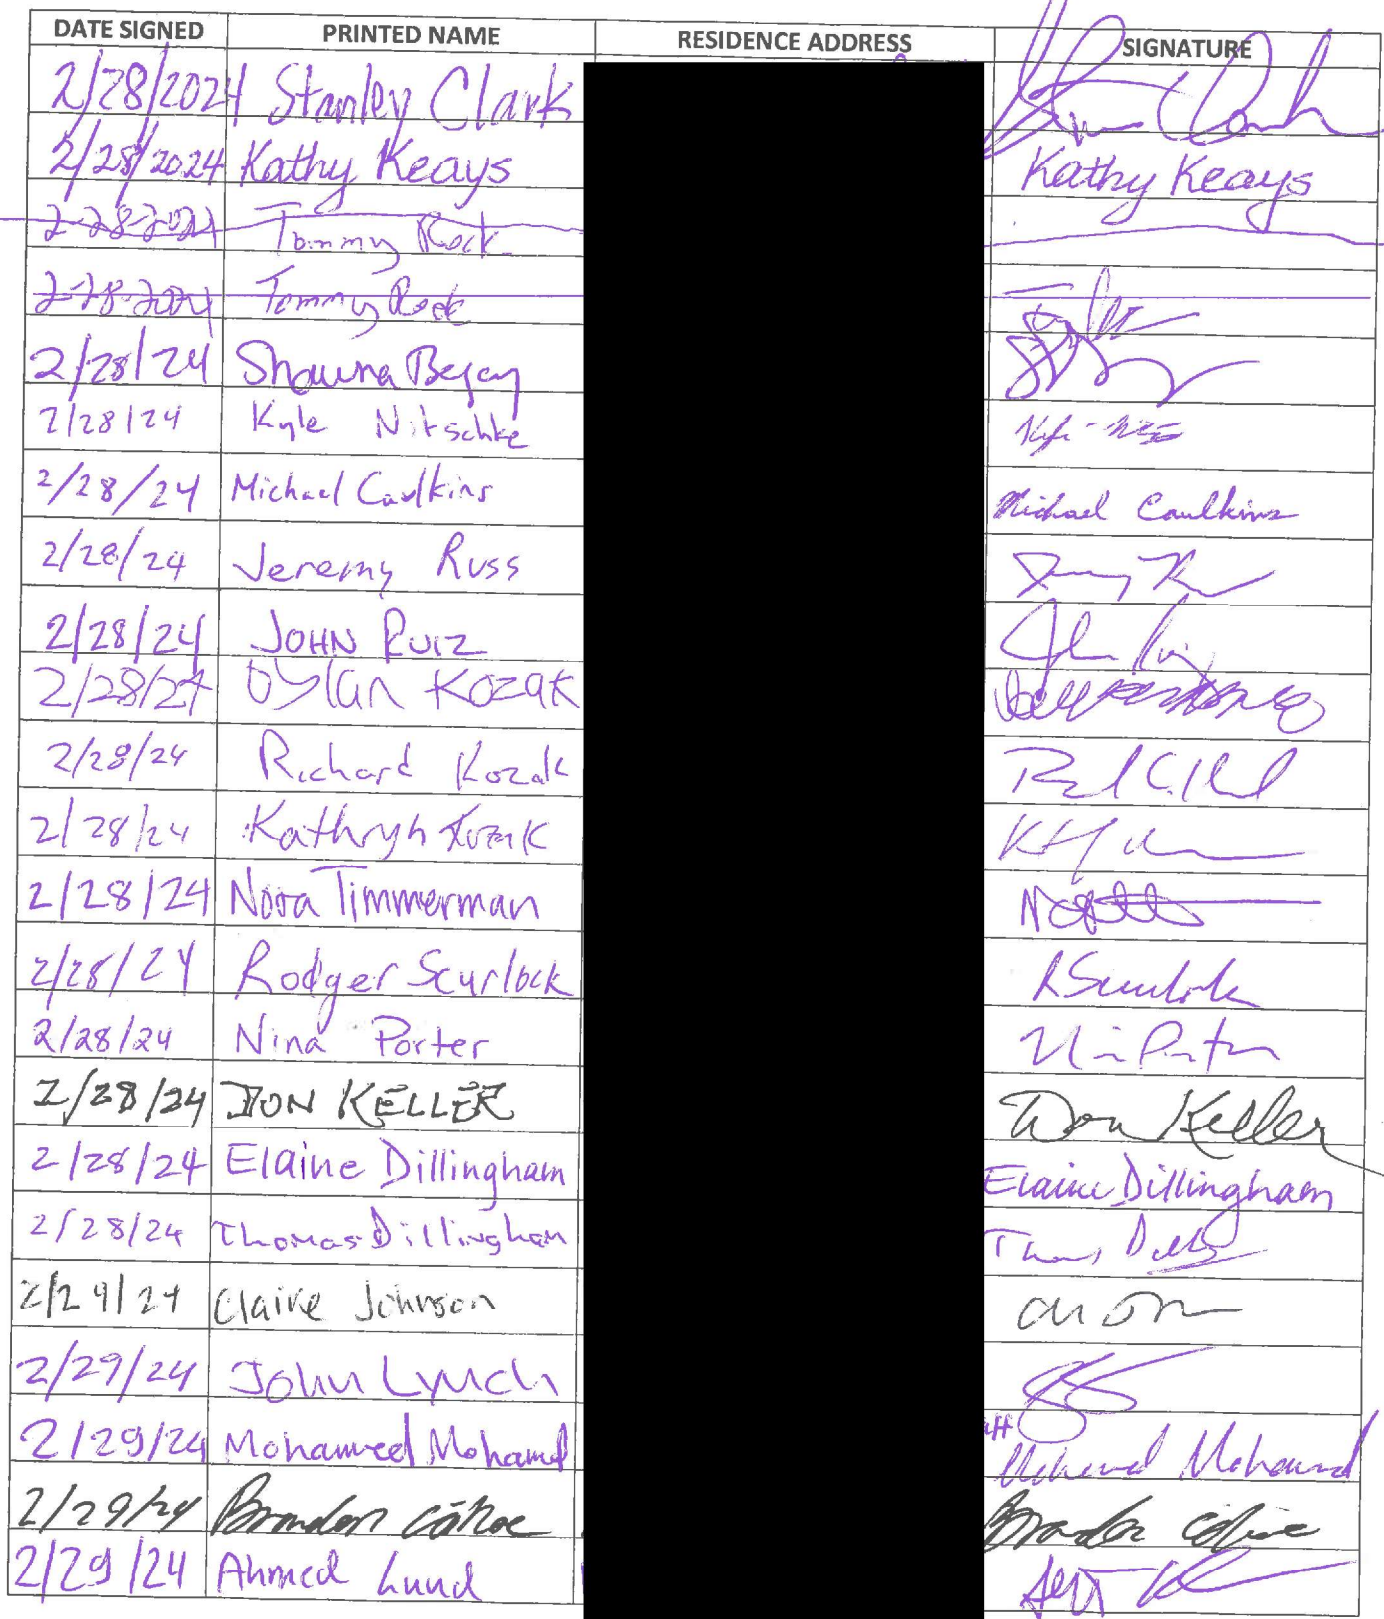 DATE SIGNED PRINTED NAME RESIDENCE ADDRESS SIGNATURE
2/28/2024 Stanley Clark
2/28/2024 Kathy Keays Kathy Keays
2-28-2024 Tommy Rock
2-28-2024 Tommy Rock
2/28/24 Shauna Begay
2/28/24 Kyle Nitschke
2/28/24 Michael Caulkins Michael Caulkins
2/28/24 Jeremy Russ
2/28/24 JOHN RUIZ John Ruiz
2/28/24 Dylan Kozak
2/28/24 Richard Kozak
2/28/24 Kathryn Kozak
2/28/24 Nora Timmerman
2/28/24 Rodger Scurlock RScurlock
2/28/24 Nina Porter Nina Porter
2/28/24 DON KELLER Don Keller
2/28/24 Elaine Dillingham Elaine Dillingham
2/28/24 Thomas Dillingham
2/29/24 Claire Johnson
2/29/24 John Lynch
2/29/24 Mohamed Mohamed Mohamed Mohamed
2/29/24 Brandon Brandon
2/29/24 Ahmed